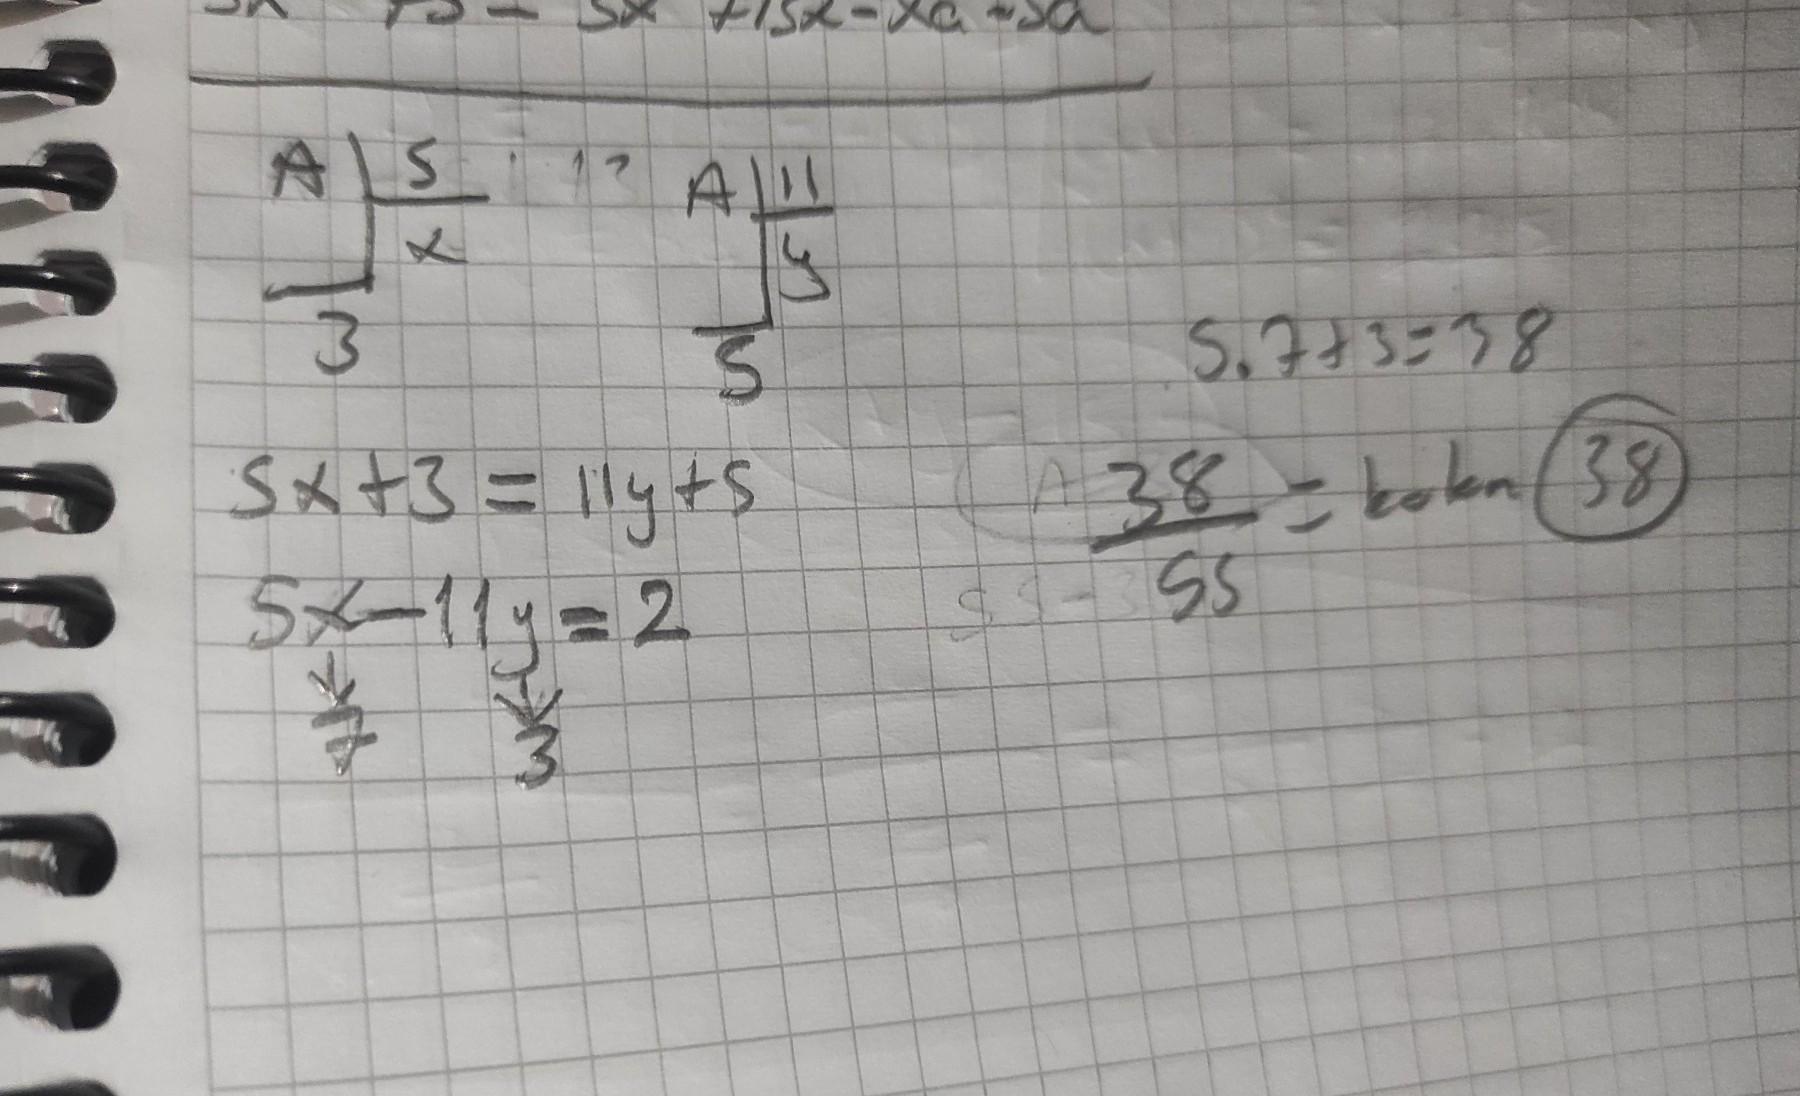 +15x-xa-3a
A 5
x
3
A 11
y
5
5.7+3=38
5x+3=11y+5
38
55
= kalan 38
5x-11y=2
7 3